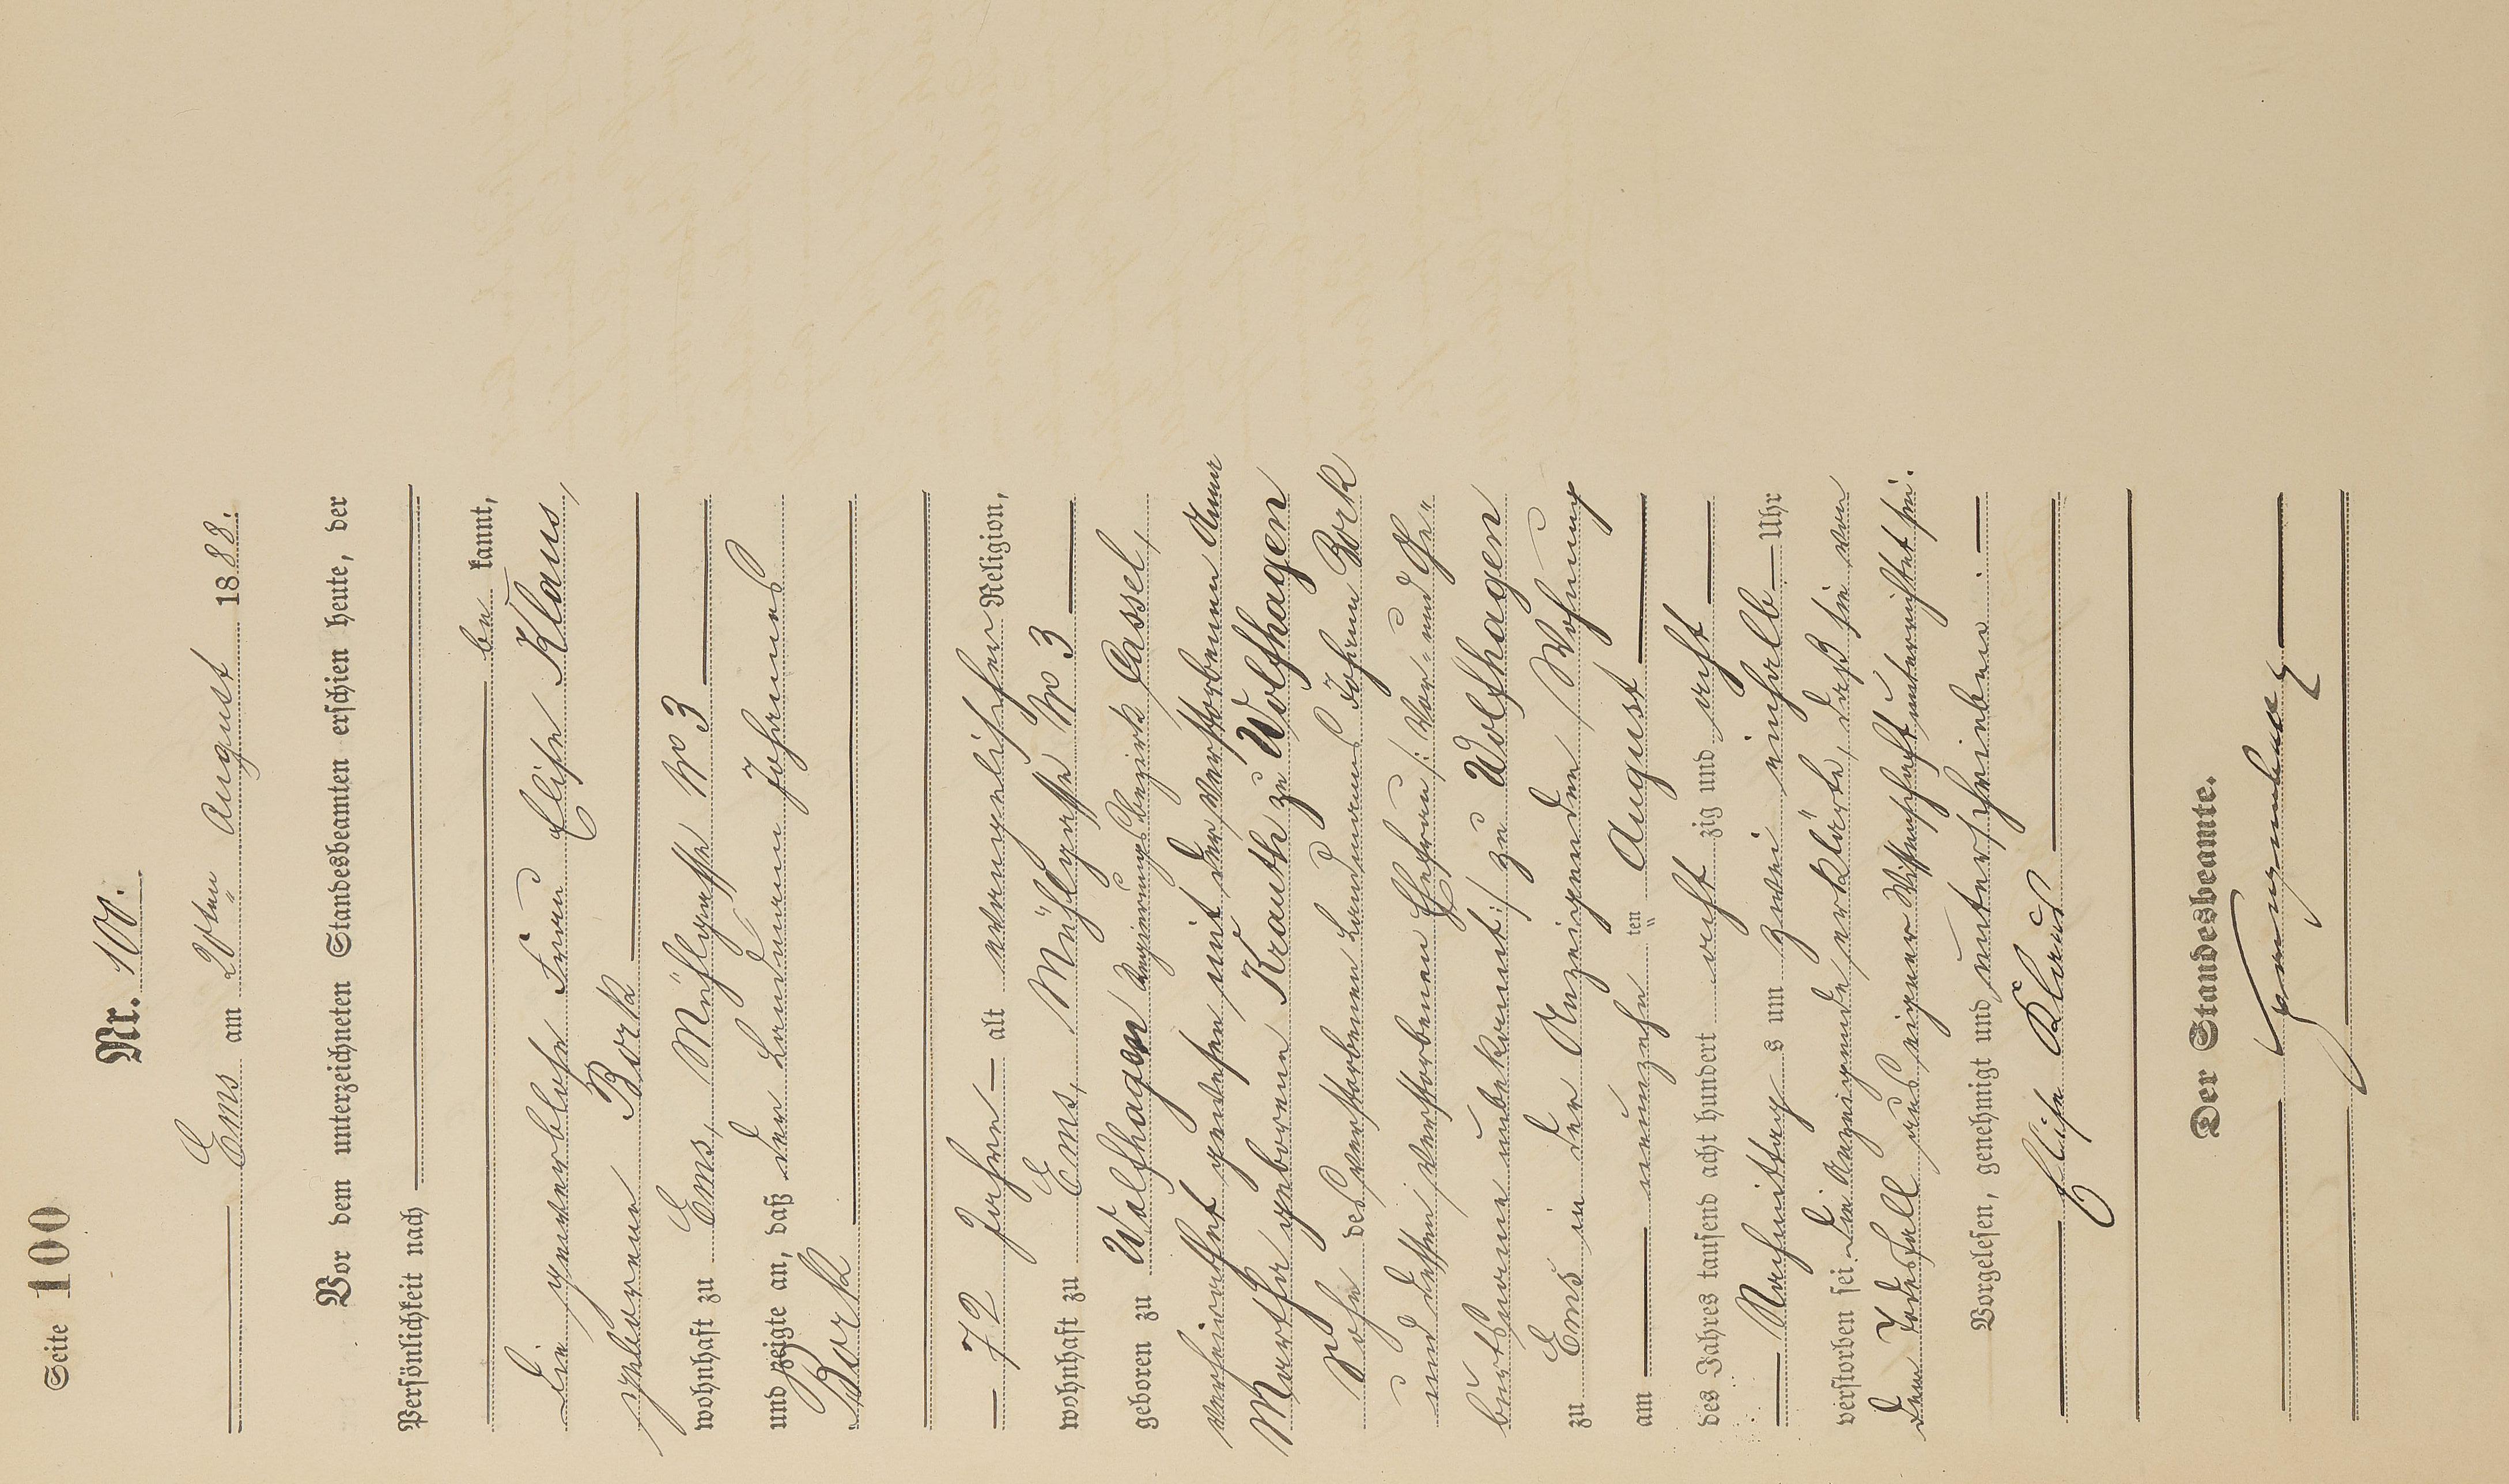 Seite 100
Nr. 100.
Ems am 20ten August 1888.
Vor dem unterzeichneten Standesbeamten erschien heute, der
Persönlichkeit nach
be kannt,
die gewerblose Frau Elise Klaus,
geborene Bork
wohnhaft zu Ems, Mühlgasse No 3
und zeigte an, daß der Landmann Johannes
Bork
72 Jahre alt evangelischer Religion,
wohnhaft zu Ems, Mühlgasse No 3
geboren zu Wolfhagen Regierungsbezirk Cassel,
verheirathet gewesen mit der verstorbenen Anna
Martha geborene Krauth zu Wolfhagen
Sohn des verstorbenen Landmanns Johann Bork
und dessen verstorbenen Ehefrau /: Vor- und Ge-
burtsname unbekannt :/ zu Wolfhagen
zu Ems in der Anzeigenden Wohnung
am neunzehn ten August
des Jahres tausend acht hundert acht zig und acht
Nachmittag s um zwei einhalb Uhr
verstorben sei. Die Anzeigende erklärte, daß sie von
dem Todesfall aus eigener Wissenschaft unterrichtet sei.
Vorgelesen, genehmigt und unterschrieben.
Elise Klaus
Der Standesbeamte.